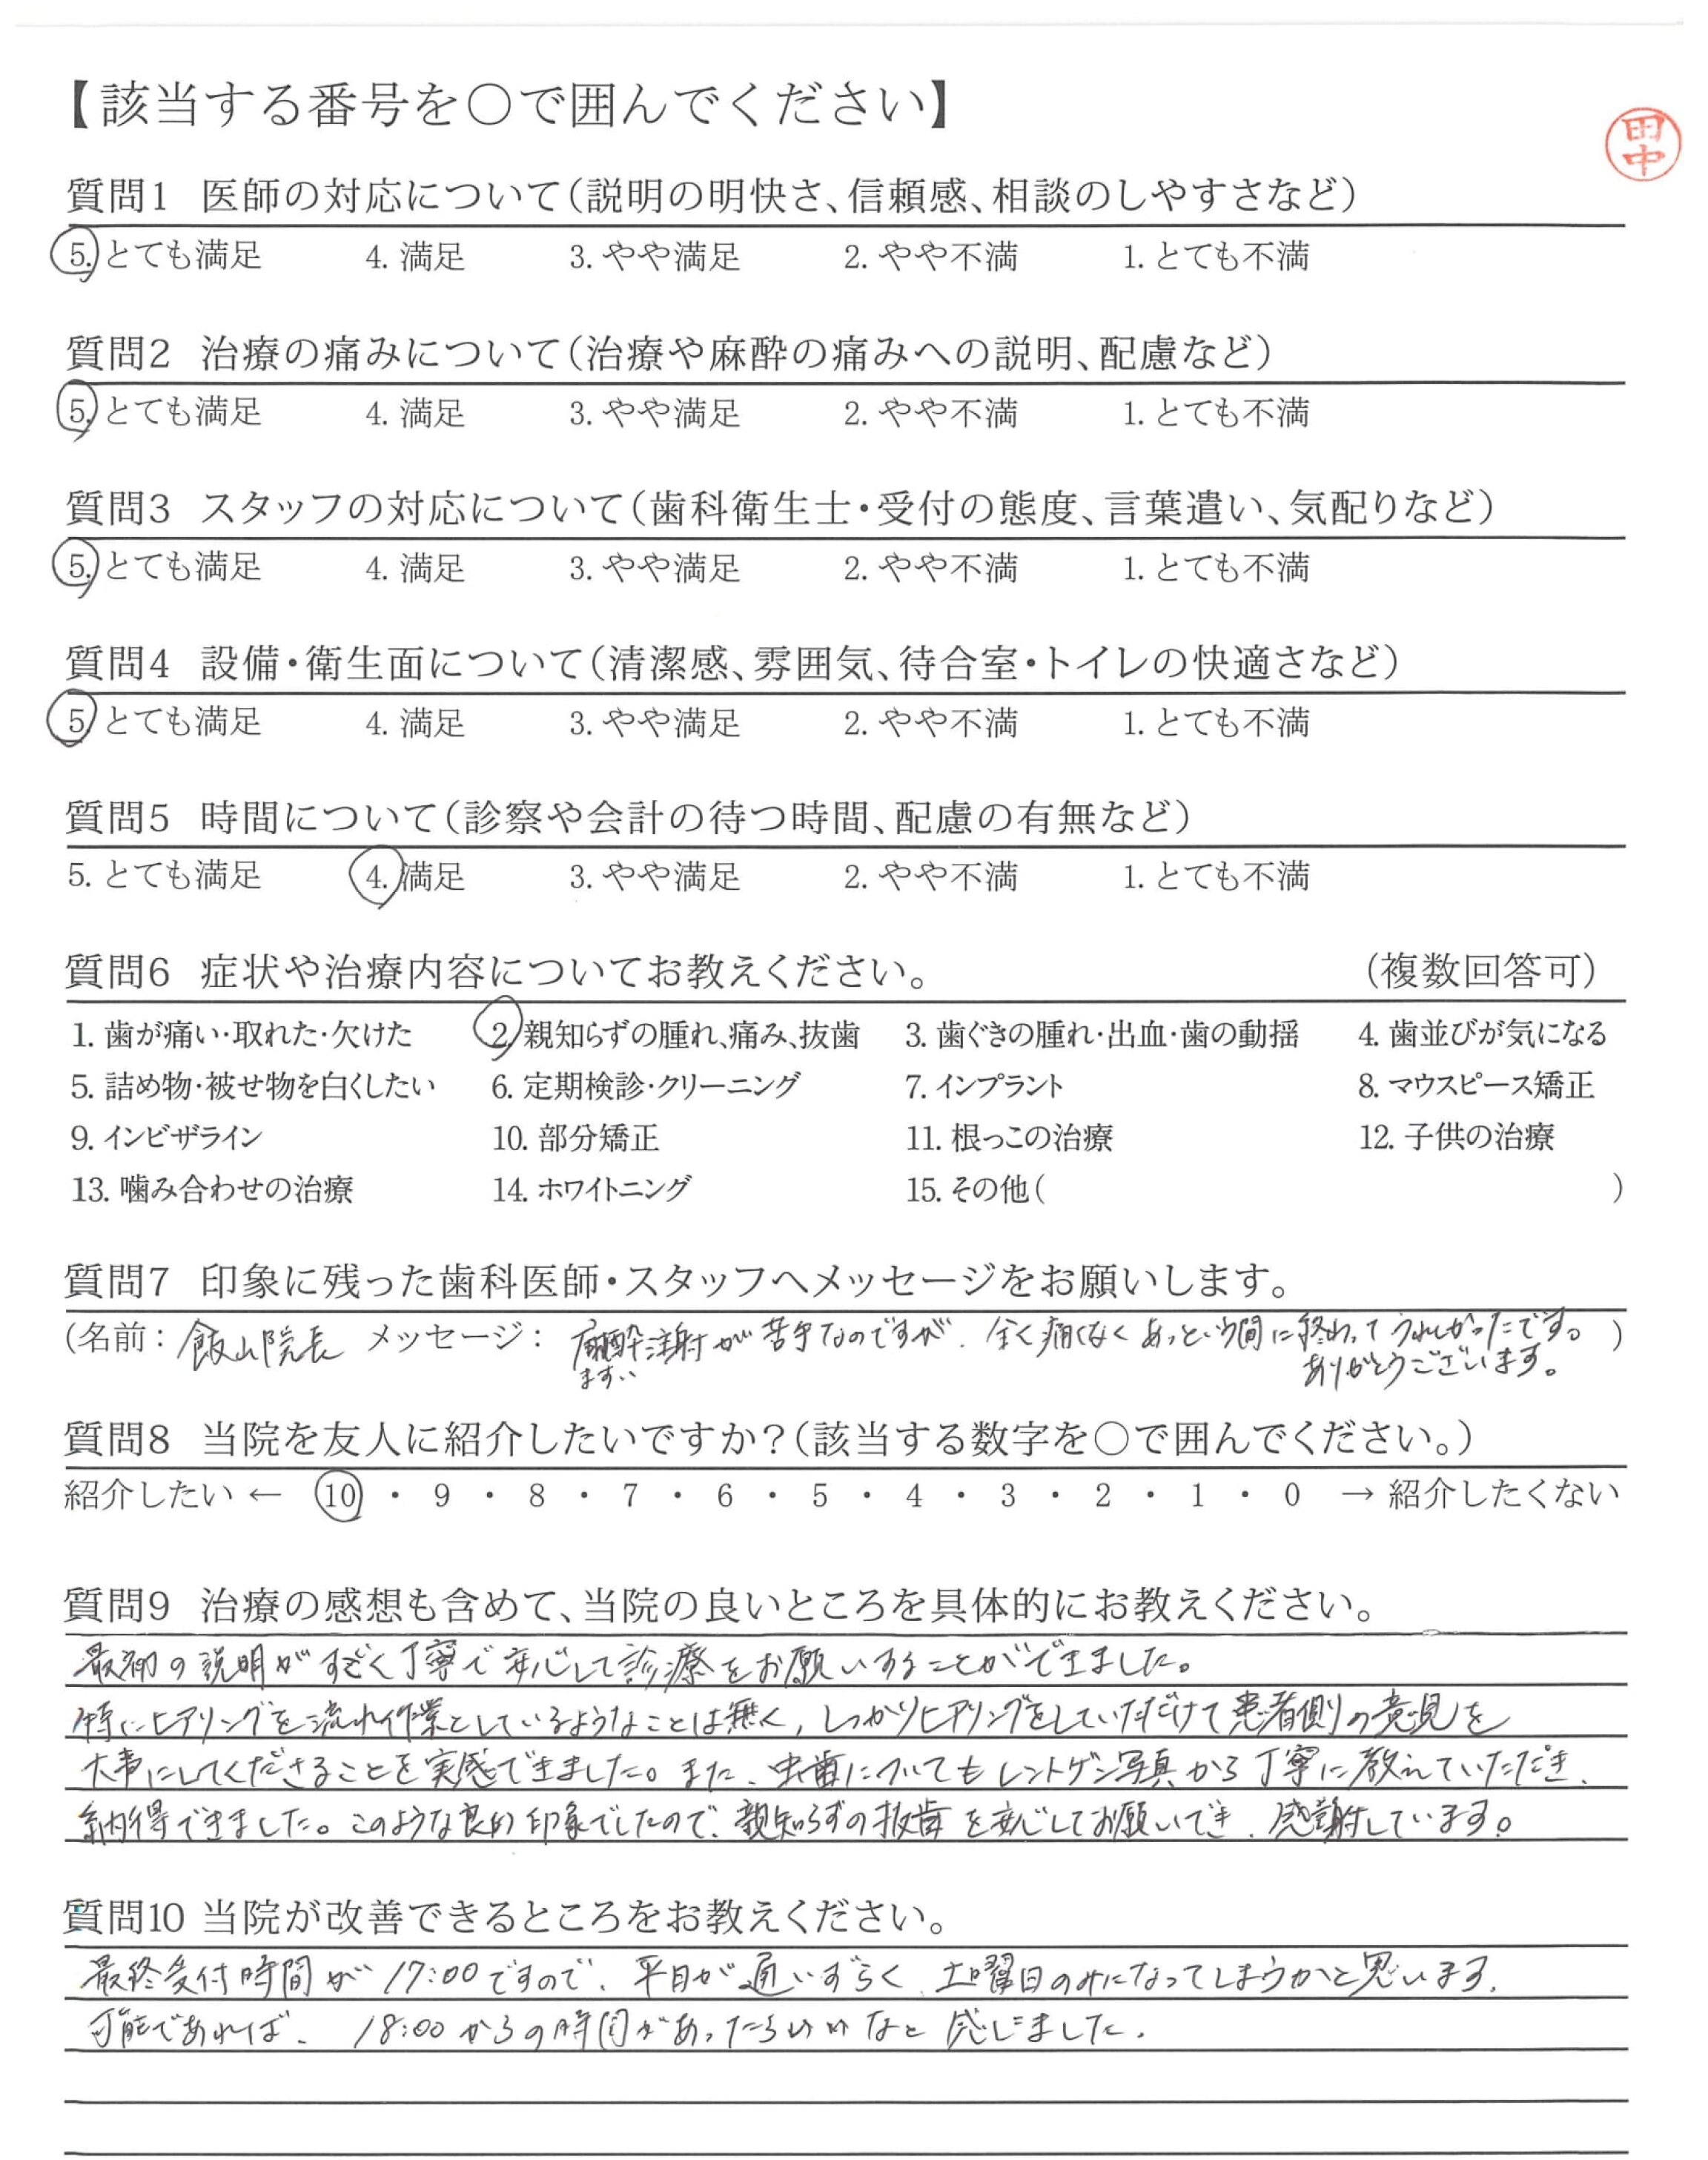 【該当する番号を○で囲んでください】
田中
質問1 医師の対応について(説明の明快さ、信頼感、相談のしやすさなど)
5. とても満足 4. 満足 3. やや満足 2. やや不満 1. とても不満
質問2 治療の痛みについて(治療や麻酔の痛みへの説明、配慮など)
5. とても満足 4. 満足 3. やや満足 2. やや不満 1. とても不満
質問3 スタッフの対応について(歯科衛生士・受付の態度、言葉遣い、気配りなど)
5. とても満足 4. 満足 3. やや満足 2. やや不満 1. とても不満
質問4 設備・衛生面について(清潔感、雰囲気、待合室・トイレの快適さなど)
5. とても満足 4. 満足 3. やや満足 2. やや不満 1. とても不満
質問5 時間について(診察や会計の待つ時間、配慮の有無など)
5. とても満足 4. 満足 3. やや満足 2. やや不満 1. とても不満
質問6 症状や治療内容についてお教えください。 (複数回答可)
1. 歯が痛い・取れた・欠けた 2. 親知らずの腫れ、痛み、抜歯 3. 歯ぐきの腫れ・出血・歯の動揺 4. 歯並びが気になる
5. 詰め物・被せ物を白くしたい 6. 定期検診・クリーニング 7. インプラント 8. マウスピース矯正
9. インビザライン 10. 部分矯正 11. 根っこの治療 12. 子供の治療
13. 噛み合わせの治療 14. ホワイトニング 15. その他( )
質問7 印象に残った歯科医師・スタッフへメッセージをお願いします。
(名前: 飯山院長 メッセージ: 麻酔注射が苦手なのですが、全く痛くなくあっという間に終わってうれしかったです。)
ますい ありがとうございます。
質問8 当院を友人に紹介したいですか?(該当する数字を○で囲んでください。)
紹介したい ← 10 ・ 9 ・ 8 ・ 7 ・ 6 ・ 5 ・ 4 ・ 3 ・ 2 ・ 1 ・ 0 → 紹介したくない
質問9 治療の感想も含めて、当院の良いところを具体的にお教えください。
最初の説明がすごく丁寧で安心して診療をお願いすることができました。
特にヒアリングを流れ作業としているようなことは無く、しっかりヒアリングをしていただけて患者側の意見を
大事にしてくださることを実感できました。また、虫歯についてもレントゲン写真から丁寧に教えていただき、
納得できました。このような良い印象でしたので、親知らずの抜歯を安心してお願いでき、感謝しています。
質問10 当院が改善できるところをお教えください。
最終受付時間が17:00ですので、平日が通いずらく、土曜日のみになってしまうかと思います。
可能であれば、18:00からの時間があったらいいなと感じました。